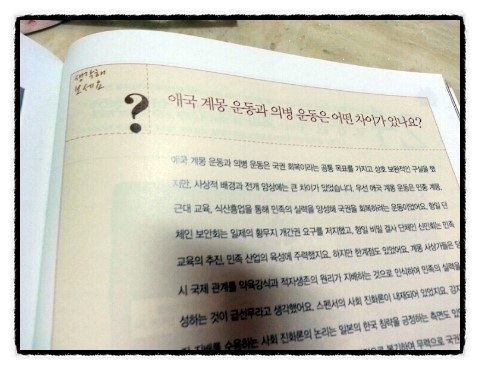 생각해
보세요
?
애국 계몽 운동과 의병 운동은 어떤 차이가 있나요?
애국 계몽 운동과 의병 운동은 국권 회복이라는 공통 목표를 가지고 상호 보완적인 구실을 했
지만, 사상적 배경과 전개 양상에는 큰 차이가 있었습니다. 우선 애국 계몽 운동은 민중 계몽,
근대 교육, 식산흥업을 통해 민족의 실력을 양성해 국권을 회복하려는 운동이었어요. 항일 단
체인 보안회는 일제의 황무지 개간권 요구를 저지했고, 항일 비밀 결사 단체인 신민회는 민족
교육의 추진, 민족 산업의 육성에 주력했지요. 하지만 한계점도 있었어요. 계몽 사상가들은 당
시 국제 관계를 약육강식과 적자생존의 원리가 지배하는 것으로 인식하여 민족의 실력을
성하는 것이 급선무라고 생각했어요. 스펜서의 사회 진화론이 내재되어 있었지요.
지배를 수용하는 사회 진화론의 논리는 일본의 한국 침략을 긍정하는 측면도
무력으로